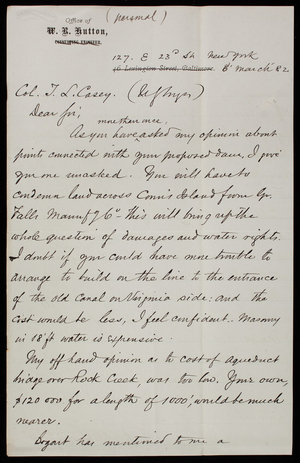 Office of (personal)
W. R. Hutton,
CONSULTING ENGINEER.
127. E 23d St New York
40 Lexington Street, Baltimore. 8 March 82
Col. T. L. Casey. (U.S. Engrs)
Dear Sir;
more than once,
As you have asked my opinion about
points connected with your proposed dam, I give
you one unasked. You will have to
condemn land across Conn's Island from Gr.
Falls Manufg Co. This will bring up the
whole question of damages and water rights.
I doubt if you could have more trouble to
arrange to build on the line to the entrance
of the old Canal on Virginia side: and the
cost would be less, I feel confident. Masonry
in 18 ft water is expensive.
My off hand opinion as to cost of aqueduct
bridge over Rock Creek, was too low. Your own,
$120 000 for a length of 1000', would be much
nearer.
Bogart has mentioned to me a